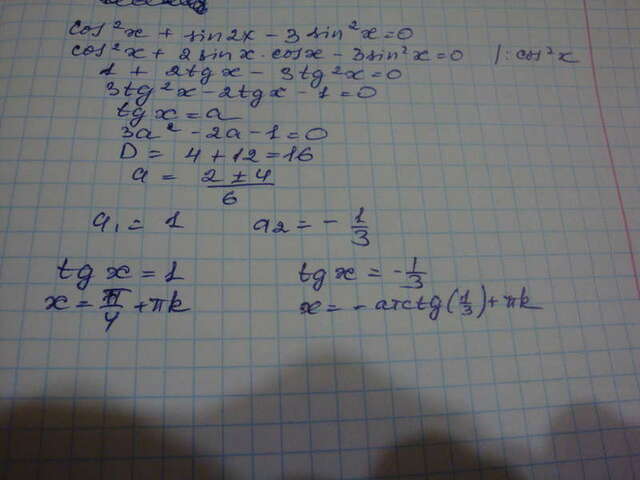 cos²x + sin2x - 3sin²x = 0
cos²x + 2sinx·cosx - 3sin²x = 0 |:cos²x
1 + 2tgx - 3tg²x = 0
3tg²x - 2tgx - 1 = 0
tgx = a
3a² - 2a - 1 = 0
D = 4 + 12 = 16
a = (2 ± 4)/6
a₁ = 1 a₂ = -1/3
tgx = 1 tgx = -1/3
x = π/4 + πk x = -arctg(1/3) + πk